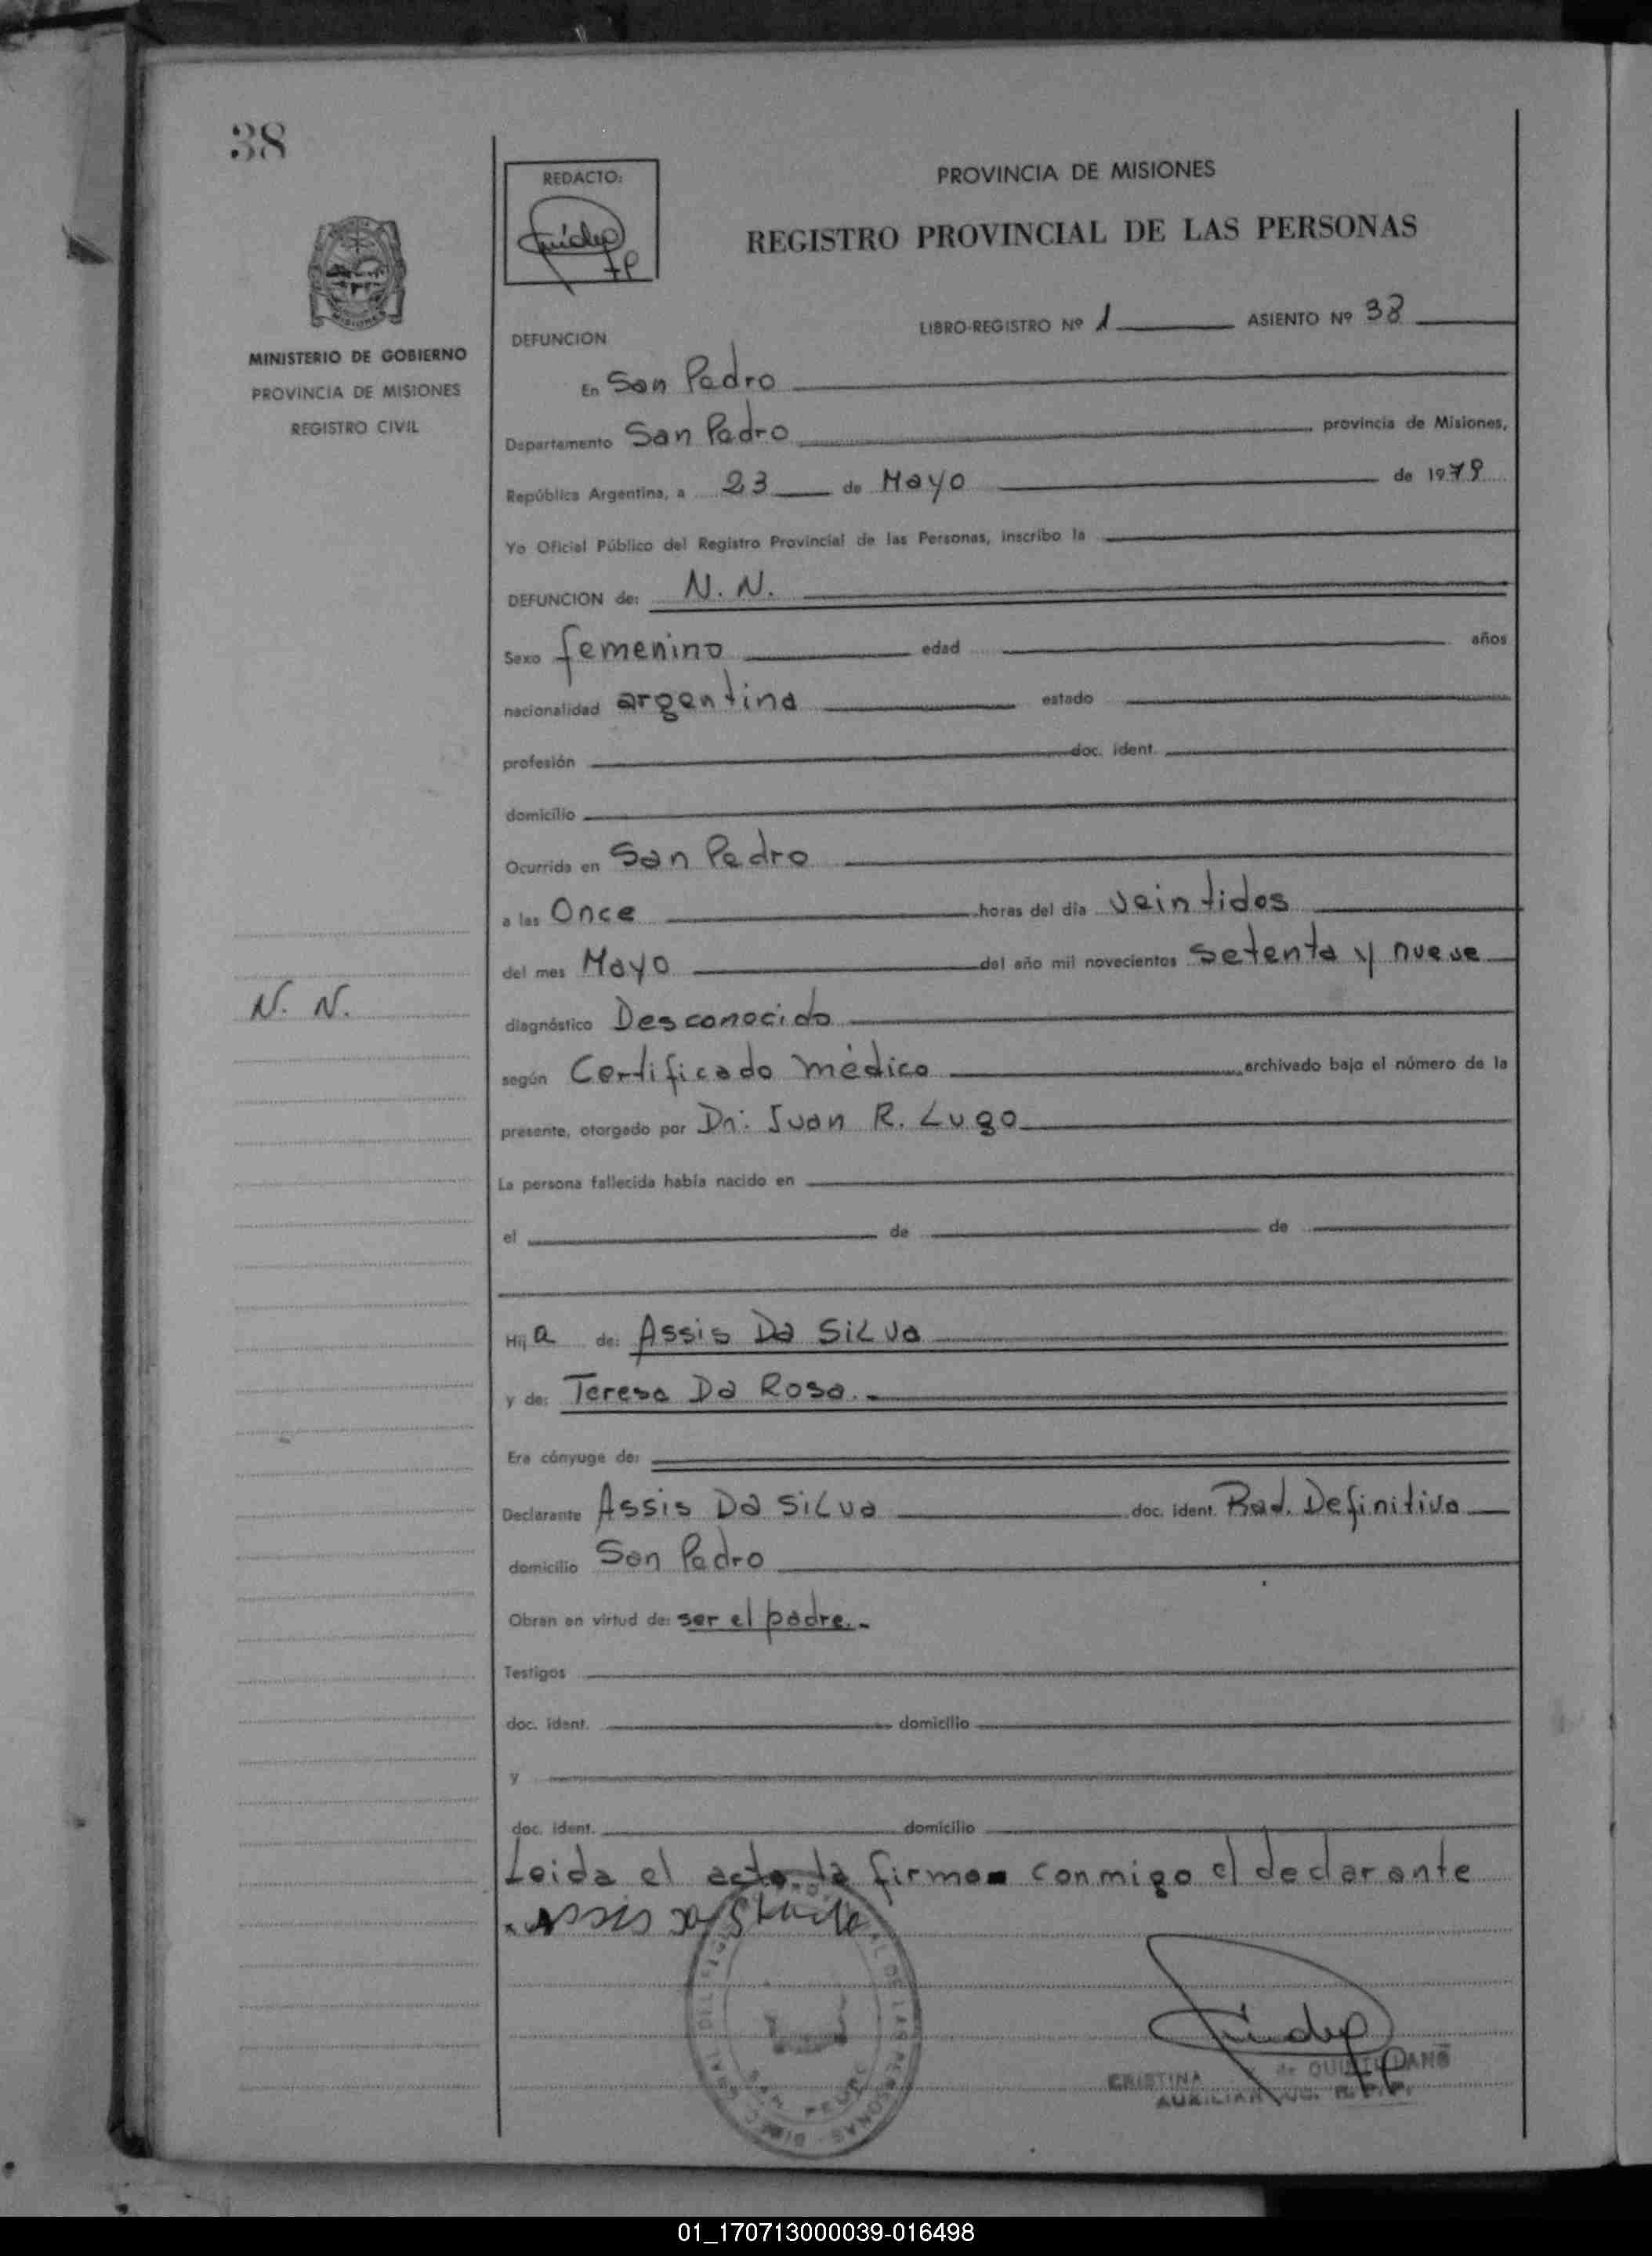 38
REDACTO:
PROVINCIA DE MISIONES
REGISTRO PROVINCIAL DE LAS PERSONAS
MISIONES
MINISTERIO DE GOBIERNO
PROVINCIA DE MISIONES
REGISTRO CIVIL
LIBRO-REGISTRO Nº 1 ASIENTO Nº 38
DEFUNCION
En San Pedro
Departamento San Pedro provincia de Misiones,
República Argentina, a 23 de Mayo de 1979
Yo Oficial Público del Registro Provincial de las Personas, inscribo la
DEFUNCION de: N. N.
Sexo femenino edad años
nacionalidad argentina estado
profesión doc. ident.
domicilio
Ocurrida en San Pedro
a las Once horas del día veintidos
del mes Mayo del año mil novecientos setenta y nueve
N. N.
diagnóstico Desconocido
según Certificado médico archivado bajo el número de la
presente, otorgado por Dr. Juan R. Lugo
La persona fallecida había nacido en
el de de
Hija de: Assis Da Silva
y de: Teresa Da Rosa.-
Era cónyuge de:
Declarante Assis Da Silva doc. ident. Rad. Definitiva
domicilio San Pedro
Obran en virtud de: ser el padre.-
Testigos
doc. ident. domicilio
y
doc. ident. domicilio
Leida el acta la firma conmigo el declarante
Assis da
CRISTINA de
AUXILIAR
01_170713000039-016498